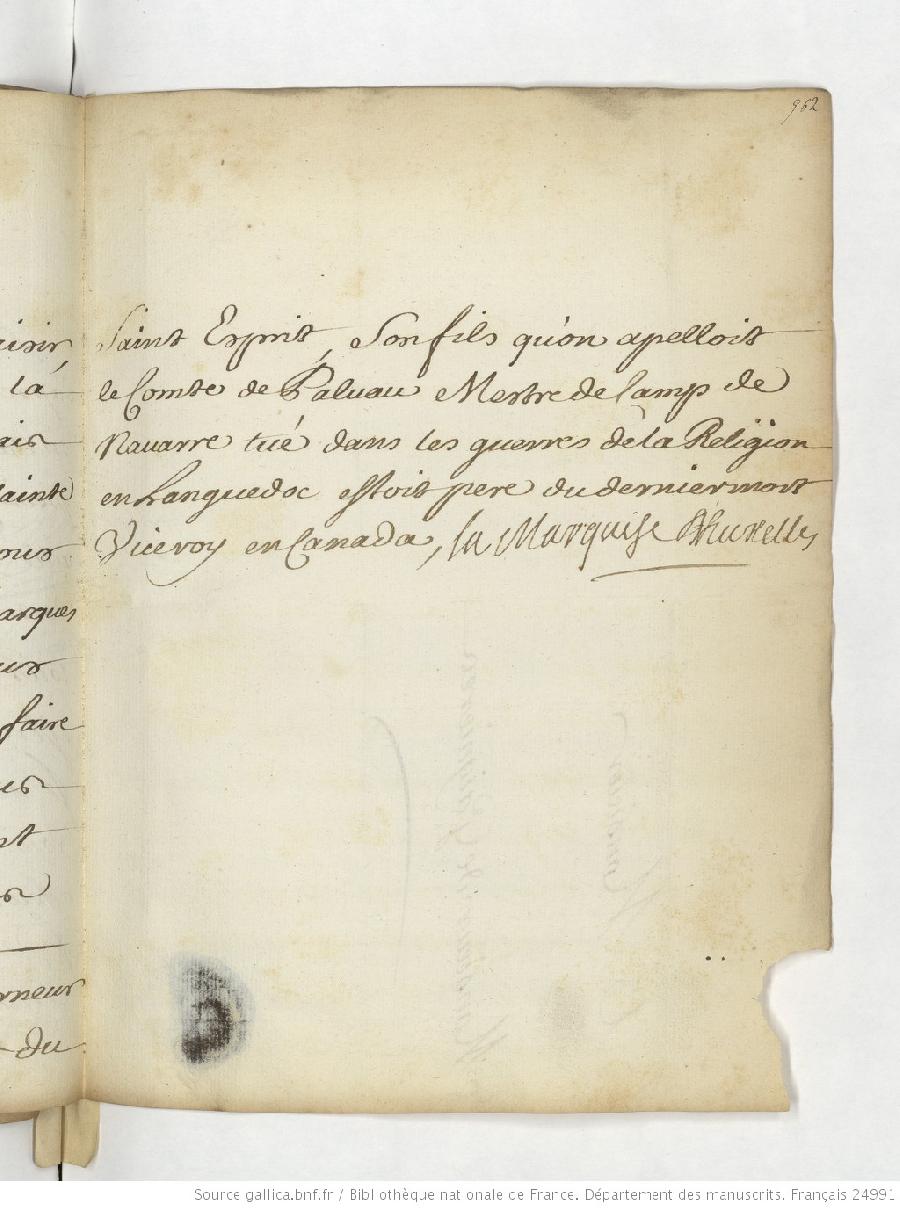 952
Saint Esprit, Son fils qu'on apelloit
le Comte de Paluau Mestre de Camp de
Nauarre tué dans les guerres de la Religion
en Languedoc estoit pere du dernier mort
Viceroy en Canada, la Marquise Dhuxelles
la
lainte
arques
faire
rneur
du
Source gallica.bnf.fr / Bibliothèque nationale de France. Département des manuscrits. Français 24991